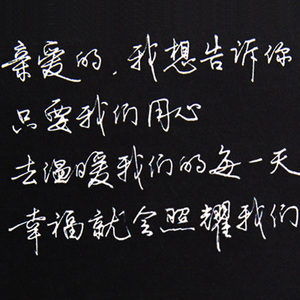 亲爱的，我想告诉你
只要我们用心
去温暖我们的每一天
幸福就会照耀我们